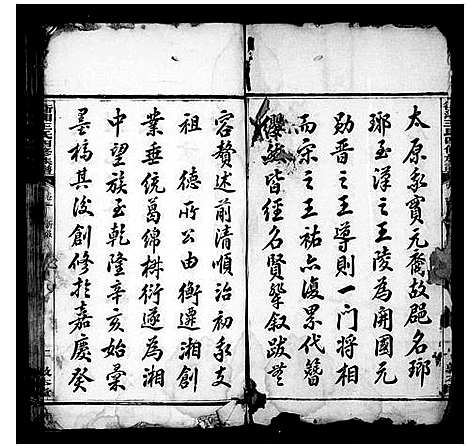 太原永寶元裔故郡名瑯
瑯玉漢之王陵為開國元
勛晉之王導則一門將相
而宋之王祐亦復累代簪
纓然皆經名賢肇叙跋無
容贅述前清順治初永支
祖 德所公由衡遷湘創
業垂統葛綿椒衍遂為湘
中望族至乾隆辛亥始彙
墨稿其後創修於嘉慶癸